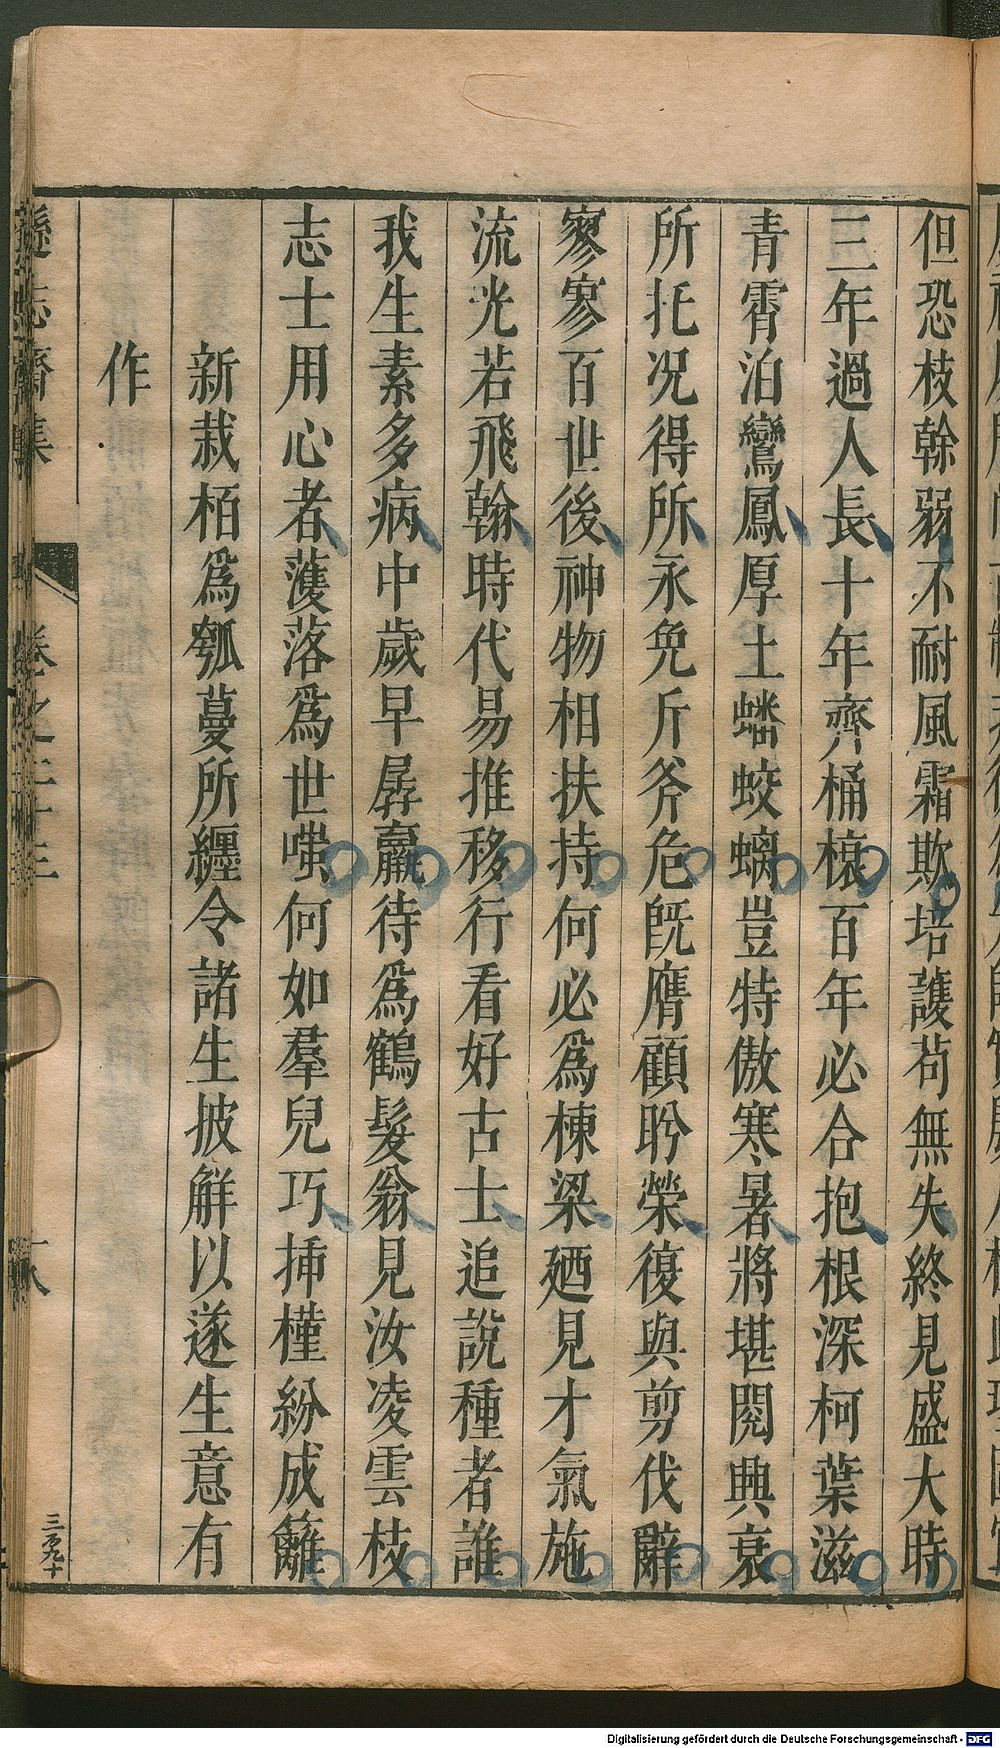 但恐枝榦弱不耐風霜欺培護苟無失終見盛大時
三年過人長十年齊桶榱百年必合抱根深柯葉滋
青霄泊鸞鳳厚土蟠蛟螭豈特傲寒暑將堪閱興衰
所托况得所永免斤斧危旣膺顧盻榮復與剪伐辭
寥寥百世後神物相扶持何必爲棟梁廼見才氣施
流光若飛翰時代易推移行看好古士追說種者誰
我生素多病中歲早孱羸待爲鶴髮翁見汝凌雲枝
志士用心者濩落爲世嗤何如羣兒巧揷槿紛成籬
新栽栢爲瓠蔓所纒令諸生披解以遂生意有
作
遜志齋集
卷之二十三
三百九十
Digitalisierung gefördert durch die Deutsche Forschungsgemeinschaft - DFG